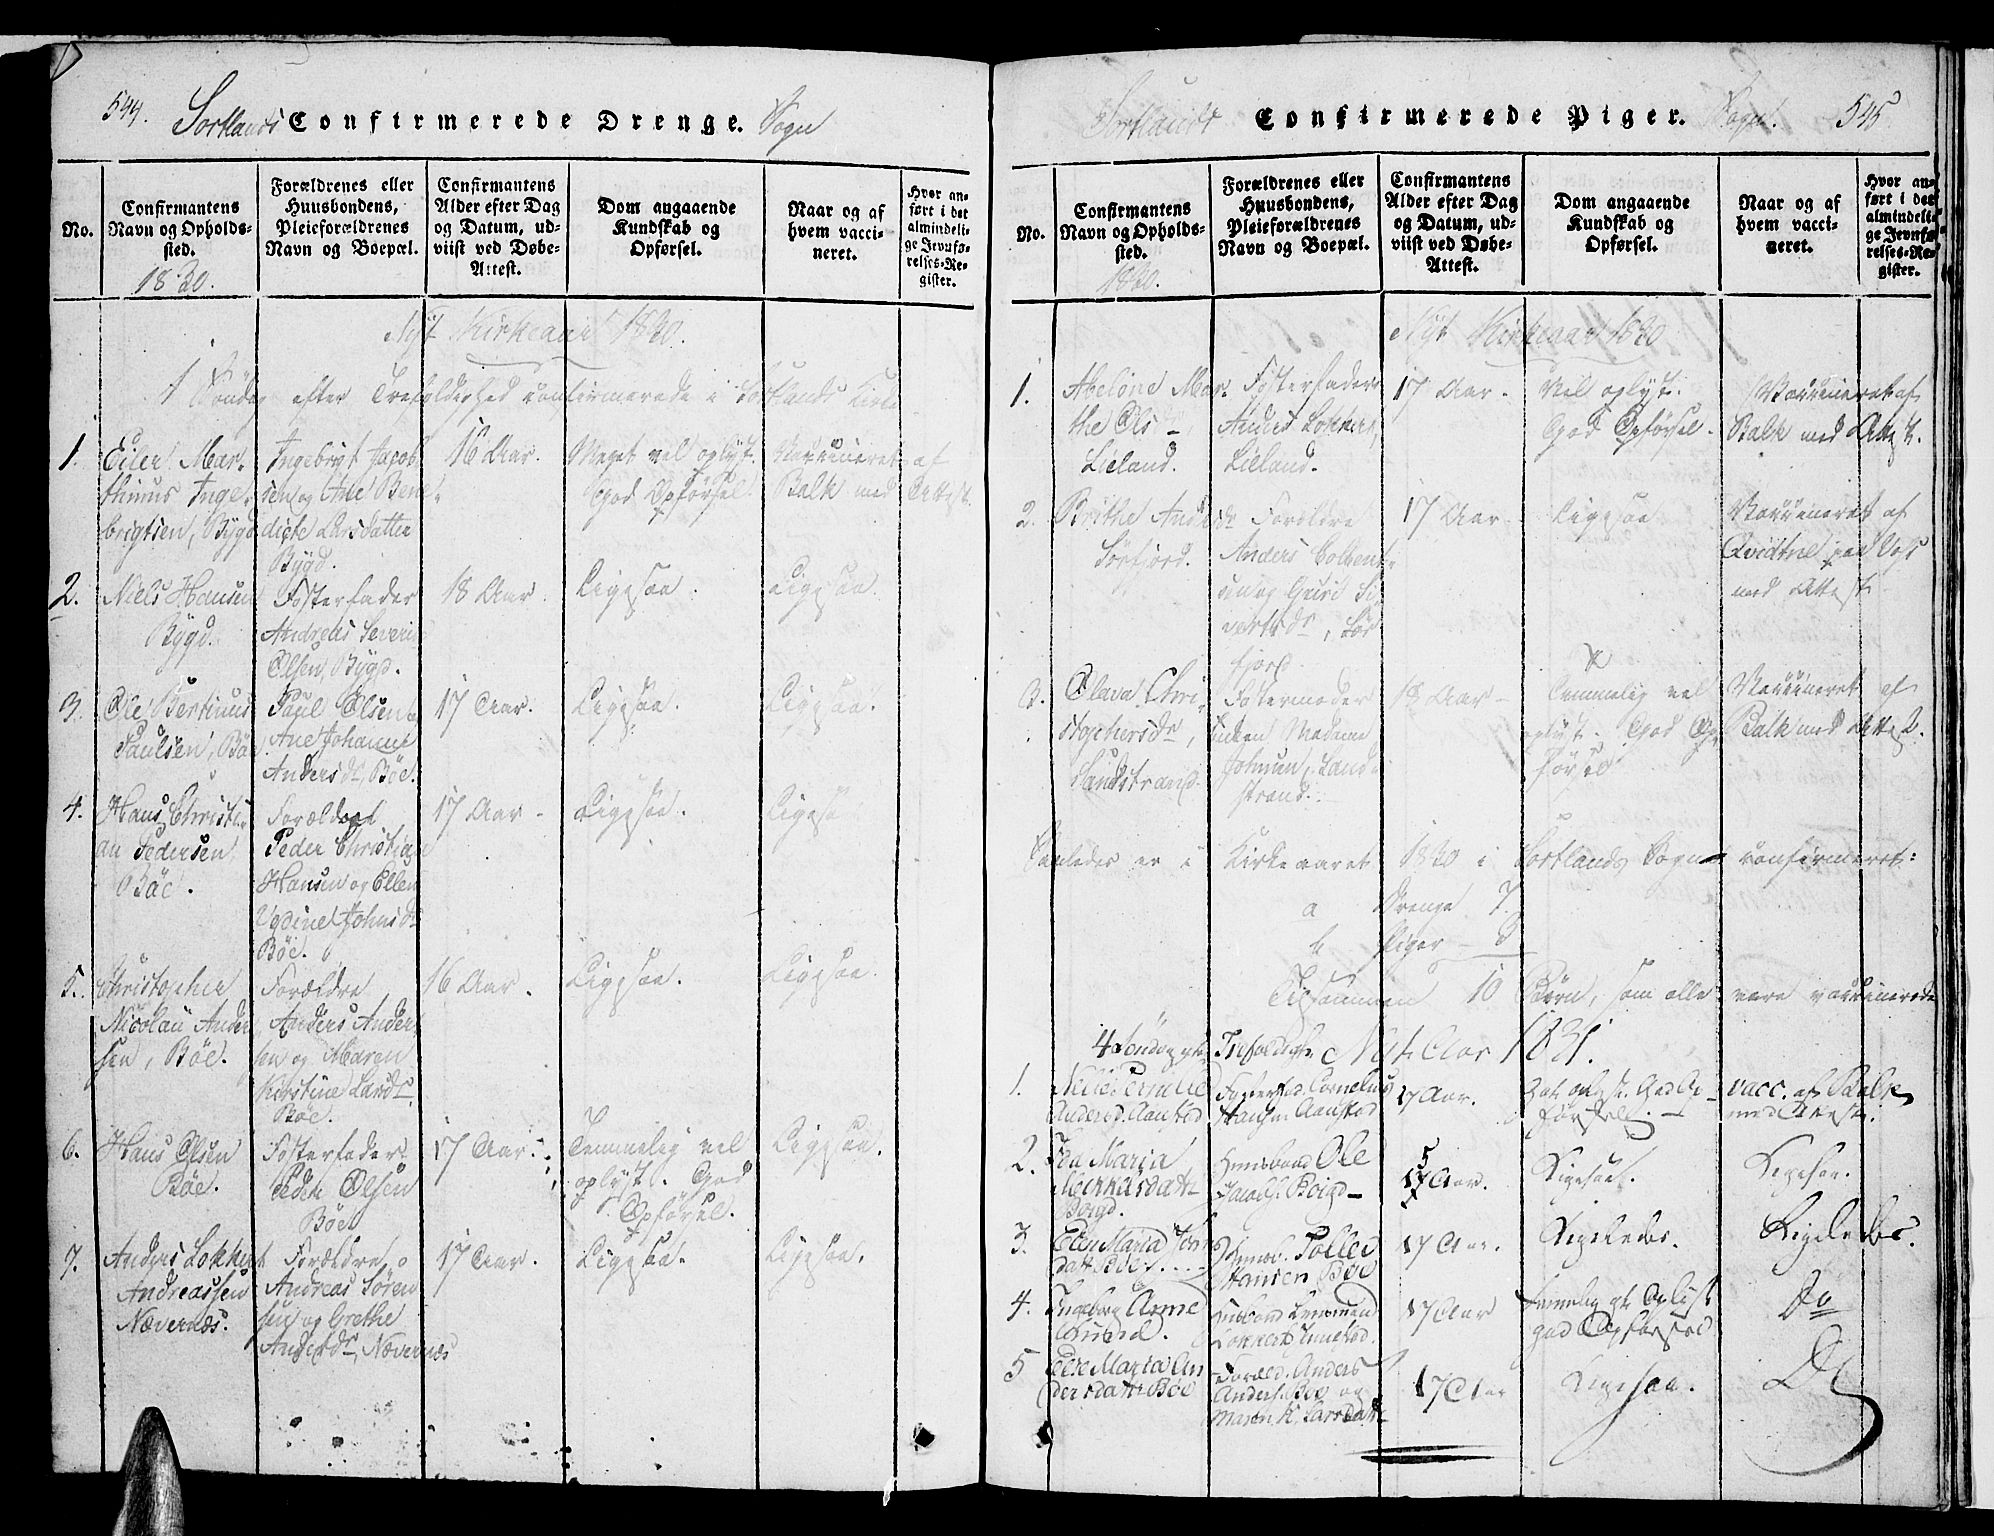 544.
Sortlands Confirmerede Drenge. Sogn
No.
Confirmantens
Navn og Opholds-
sted.
1830.
Forældrenes eller
Huusbondens,
Pleieforældrenes
Navn og Boepæl.
Confirmantens
Alder efter Dag
og Datum, ud-
viist ved Døbe-
Attest.
Dom angaaende
Kundskab og
Opførsel.
Naar og af
hvem vacci-
neret.
Hvor an-
ført i det
almindeli-
ge Jevnfø-
relses-Re-
gister.
Nyt Kirkeaar 1830.
1 Søndag efter Trefoldighed confirmerede i Sortlands Kirke
1.
Eiler Mar-
thinus Inge-
brigtsen, Bygd
Ingebrigt Jacob-
sen og Ane Bene-
dicte Larsdatter
Bygd.
16 Aar.
Meget vel oplyst.
God Opførsel.
Vaccineret af
Balk med Attest.
2.
Niels Hansen
Bygd.
Fosterfader
Andreas Severin
Olsen, Bygd.
18 Aar.
Ligesaa.
Ligesaa.
3.
Ole Bertinus
Paulsen, Böe
Paul Olsen
Ane Johanne
Andersdr, Böe.
17 Aar.
Ligesaa.
Ligesaa.
4.
Hans Christi-
an Pedersen
Böe.
Forældre
Peder Christian
Hansen og Ellen
Johnsdr
Böe.
17 Aar.
Ligesaa.
Ligesaa
5.
Christopher
Nicolai Ander-
sen, Böe.
Forældre
Anders Ander-
sen og Maren
Kirstine Larsdr.
Böe.
16 Aar.
Ligesaa.
Ligesaa.
6.
Hans Olsen
Böe.
Fosterfader
Peder Olsen
Böe
17 Aar.
Temmelig vel
oplyst. God
Opførsel.
Ligesaa.
7.
Anders Lokkert
Andreassen
Nævernæs.
Forældre
Andreas Sören-
sen og Grethe
Andersdr, Nævernæs
17 Aar.
Ligesaa.
Ligesaa.
Sortlands Confirmerede Piger. Sogn. 545
No.
Confirmantens
Navn og Opholds-
sted.
1830.
Forældrenes eller
Huusbondens,
Pleieforældrenes
Navn og Boepæl.
Confirmantens
Alder efter Dag
og Datum, ud-
viist ved Døbe-
Attest.
Dom angaaende
Kundskab og
Opførsel.
Naar og af
hvem vacci-
neret.
Hvor an-
ført i det
almindeli-
ge Jevnfø-
relses-Re-
gister.
Nyt Kirkeaar 1830
1.
Abelone Mar-
the Ols-
Lieland.
Fosterfader
Anders Lokkert,
Lieland.
17 Aar.
Vel oplyst.
God Opførsel.
Vaccineret af
Balk med Attest.
2.
Brithe Andersdr
Sörfjord.
Forældre
Anders Colbent-
sen og Guri Si-
vertsdr, Sör-
fjord.
17 Aar
Ligesaa
Vaccineret af
Qvidtne paa Vos
med Attest
3.
Olava Chri-
stophersdr,
Sandstrand.
Fostermoder
Enken Madame
Johnsen, Sand-
strand.
18 Aar
Temmelig vel
oplyst. God Op-
førsel
Vaccineret af
Balk med Attest.
Saaledes er i Kirkeaaret 1830 i Sortlands Sogn confirmeret:
a Drenge 7.
b Piger - 3
Tilsammen 10 Børn, som alle vare vaccinerede
4 Søndag efter Trefoldigh. Nyt Aar 1831.
1.
Anders. Aanstad
Fosterfad. Cornelius
Hansen Aanstad
17 Aar.
Got oplyst. God Op-
førsel.
vacc. af Balk
med Attest.
2.
Ida Maria
Boigd.
Huusbond Ole
Jacobs. Boigd
15 Aar.
Ligesaa.
Ligesaa.
3.
Elen Maria Jons
datt Böe
Huusb. Toller
Hansen Böe
17 Aar.
Ligeledes.
Ligeledes.
4.
Ingeborg Anne
17 Aar
Temmelig gt. Oplist
god Opförsel
Do
5
Maria An-
dersdatt. Böe
Foræld. Anders
Anders. Böe og
Maren K. Larsdatt
17 Aar
Ligesaa.
Do